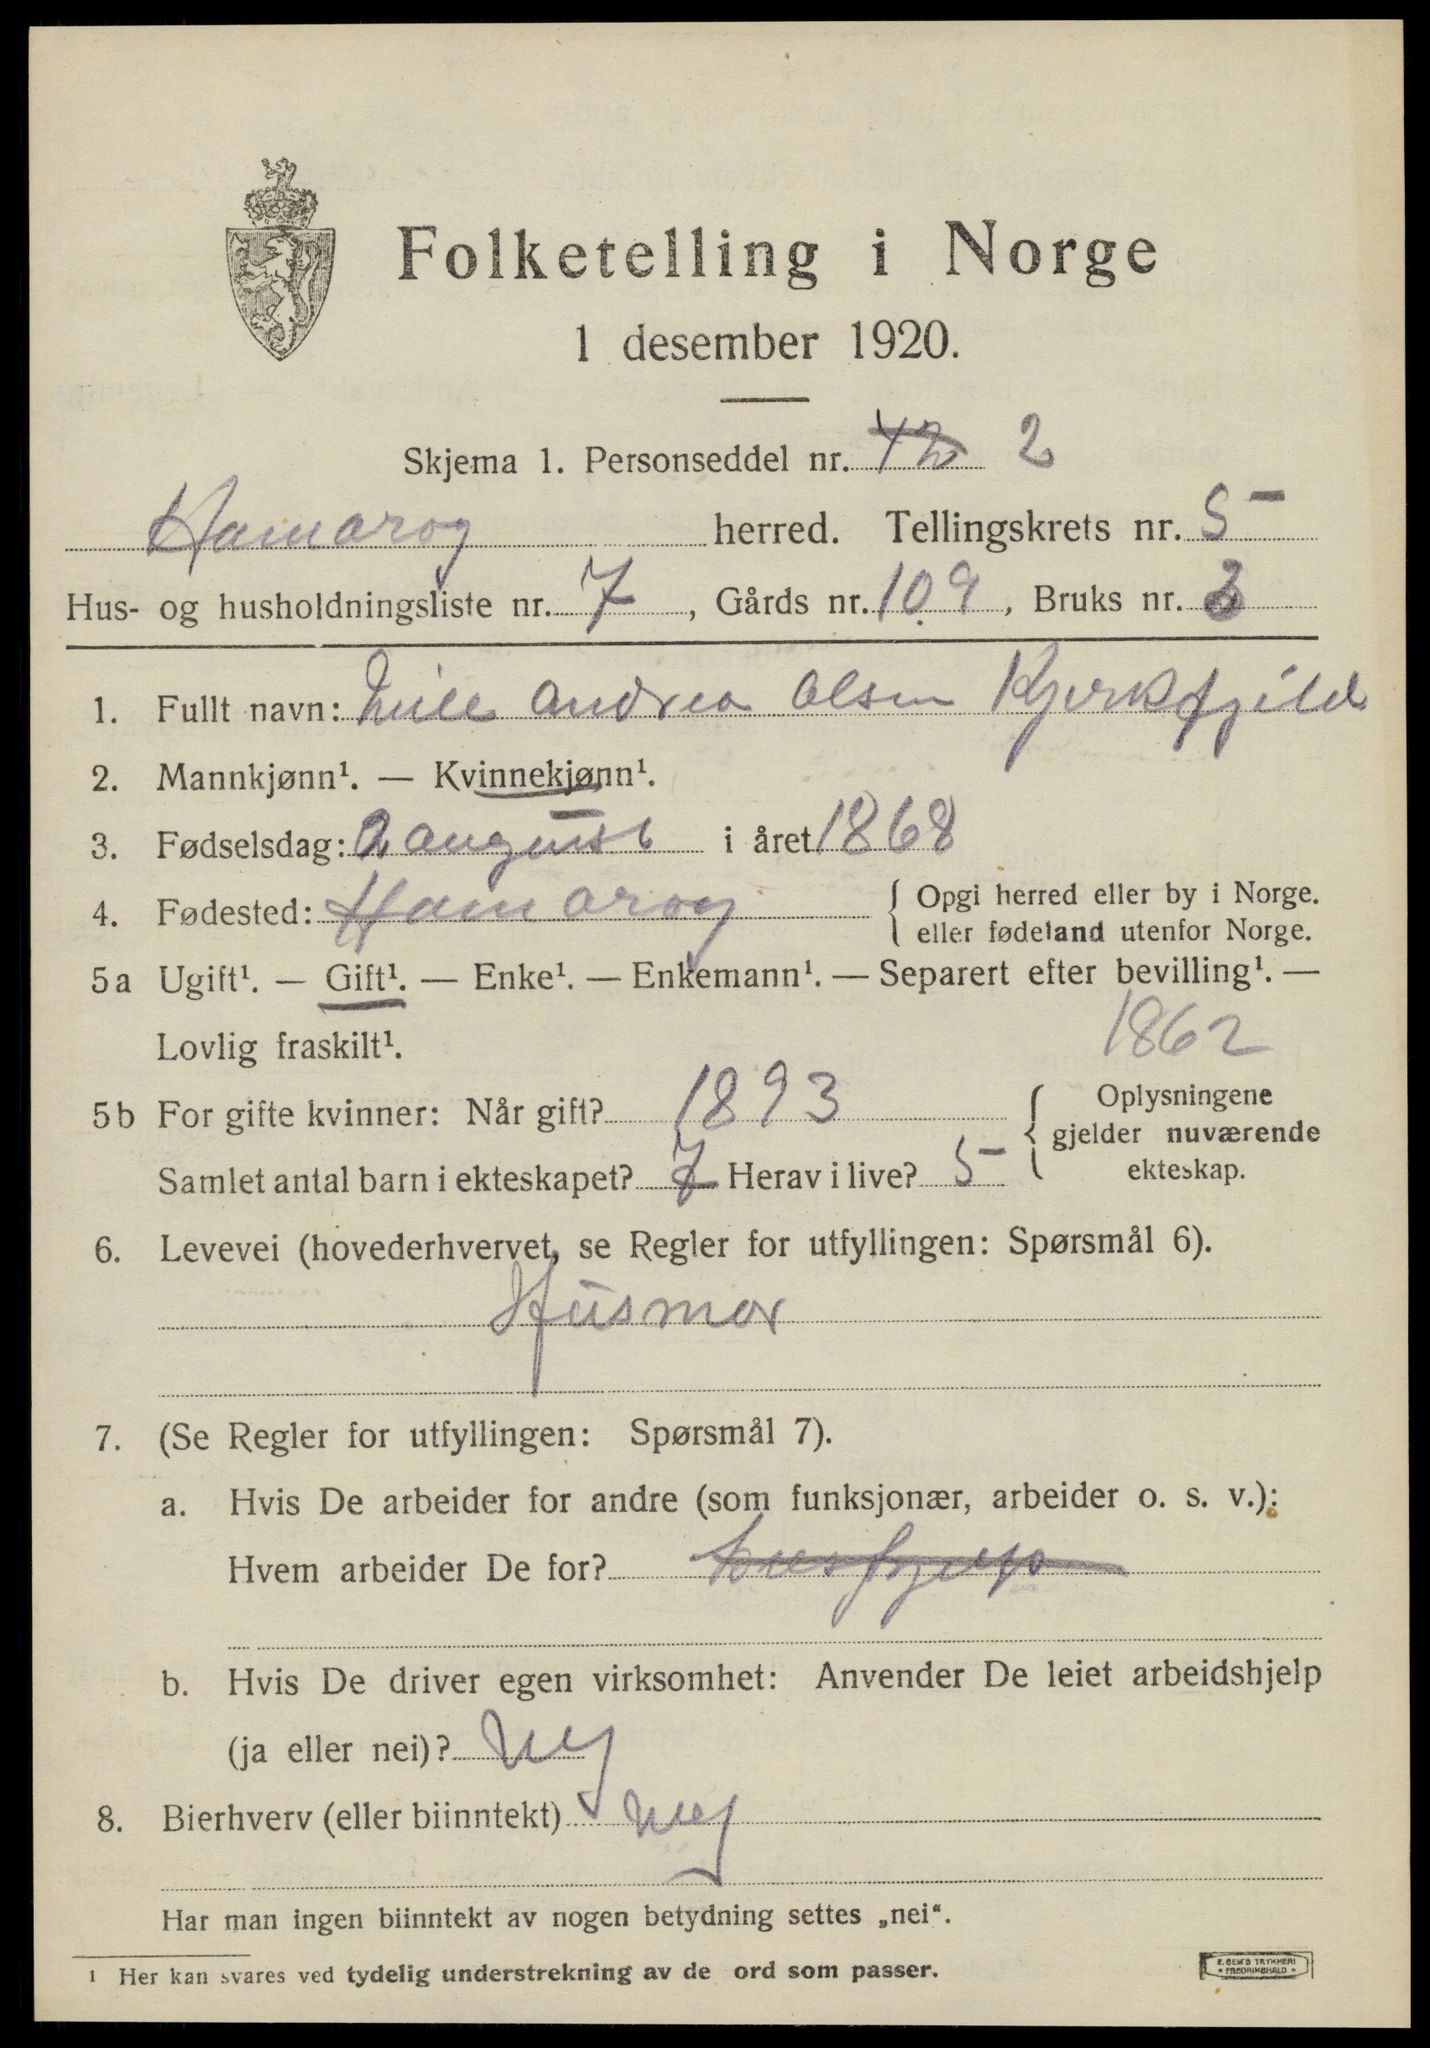 Folketelling i Norge
1 desember 1920.
Skjema 1. Personseddel nr. 42 2
Hamarøy herred. Tellingskrets nr. 5
Hus- og husholdningsliste nr. 7, Gårds nr. 109, Bruks nr. 3
1. Fullt navn: Andrea Olsen Kjerkfjeld
2. Mannkjønn¹. — Kvinnekjønn¹.
3. Fødselsdag: 2 august i året 1868
4. Fødested: Hamarøy { Opgi herred eller by i Norge.
eller fødeland utenfor Norge.
5a Ugift¹. — Gift¹. — Enke¹. — Enkemann¹. — Separert efter bevilling¹. —
Lovlig fraskilt¹. 1862
5b For gifte kvinner: Når gift? 1893 { Oplysningene
gjelder nuværende
Samlet antal barn i ekteskapet? 7 Herav i live? 5 ekteskap.
6. Levevei (hovederhvervet, se Regler for utfyllingen: Spørsmål 6).
Husmor
7. (Se Regler for utfyllingen: Spørsmål 7).
a. Hvis De arbeider for andre (som funksjonær, arbeider o. s. v.):
Hvem arbeider De for?
b. Hvis De driver egen virksomhet: Anvender De leiet arbeidshjelp
(ja eller nei)? Nej
8. Bierhverv (eller biinntekt) nej
Har man ingen biinntekt av nogen betydning settes „nei“.
1 Her kan svares ved tydelig understrekning av de ord som passer.
E. SEM'S TRYKKERI
* FREDRIKSHALD *